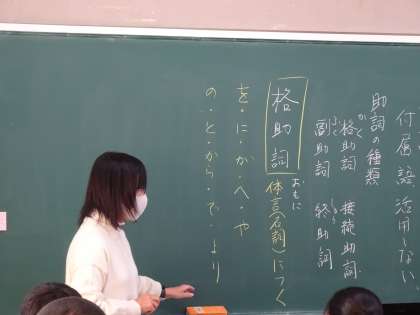 付属語 活用しない。
助詞の種類
かく
格助詞 接続助詞
ふく しゅう
副助詞 終助詞
格助詞 おもに体言(名詞)につく
を・に・が・へ・や
の・と・から・で・より